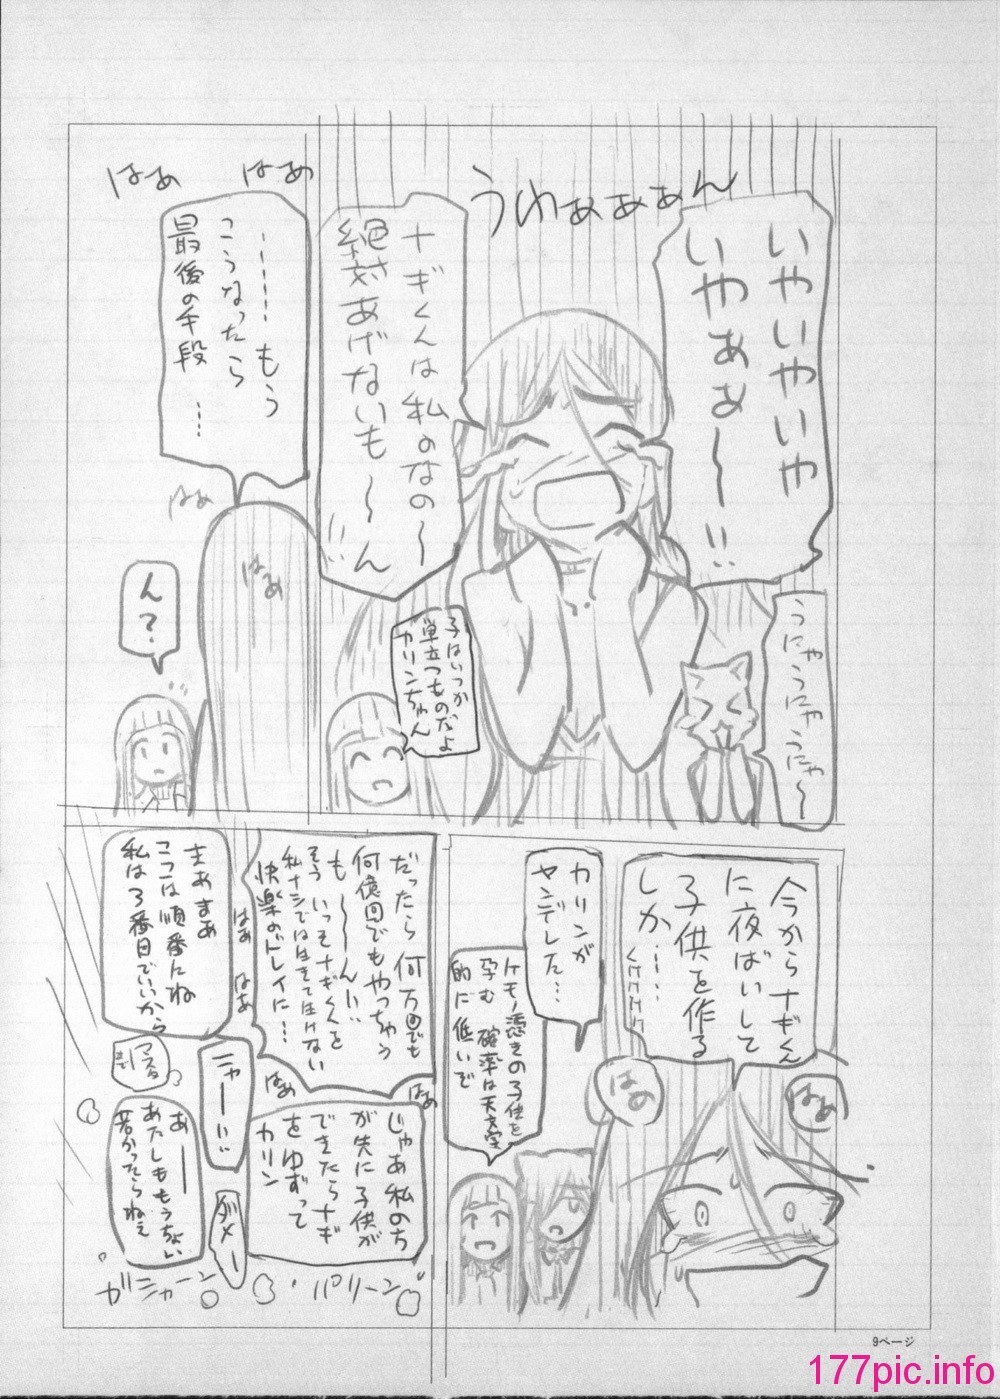 うわぁぁぁん
いやいやいや
いやぁぁ〜!!
うにゃうにゃうにゃ〜
ナギくんは私のなの〜
絶対あげないも〜ん
!!
子はいつか
巣立つものだよ
カリンちゃん
はぁ
はぁ
……もう
こうなったら
最後の手段
…
はぁ
はぁ
ん?
今からナギくん
に夜ばいして
子供を作る
しか……
はぁ
はぁ
カリンが
ヤンデレした…
ケモノ憑きの子供を
孕む確率は天文学
的に低いで
だったら何万回でも
何億回でもやっちゃう
も〜〜ん!!
そういっそナギくんを
私ナシでは生きて生けない
快楽のドレイに…
はぁ
はぁ
はぁ
はぁ
じゃあ私のち
が先に子供が
できたらナギ
をゆずって
カリン
まあまあ
ここは順番にね
私は3番目でいいから
ニャー!!
ダメー
あー
あたしももうちょい
若かったらねぇ
ガシャーン
パリーン
9ページ
177pic.info